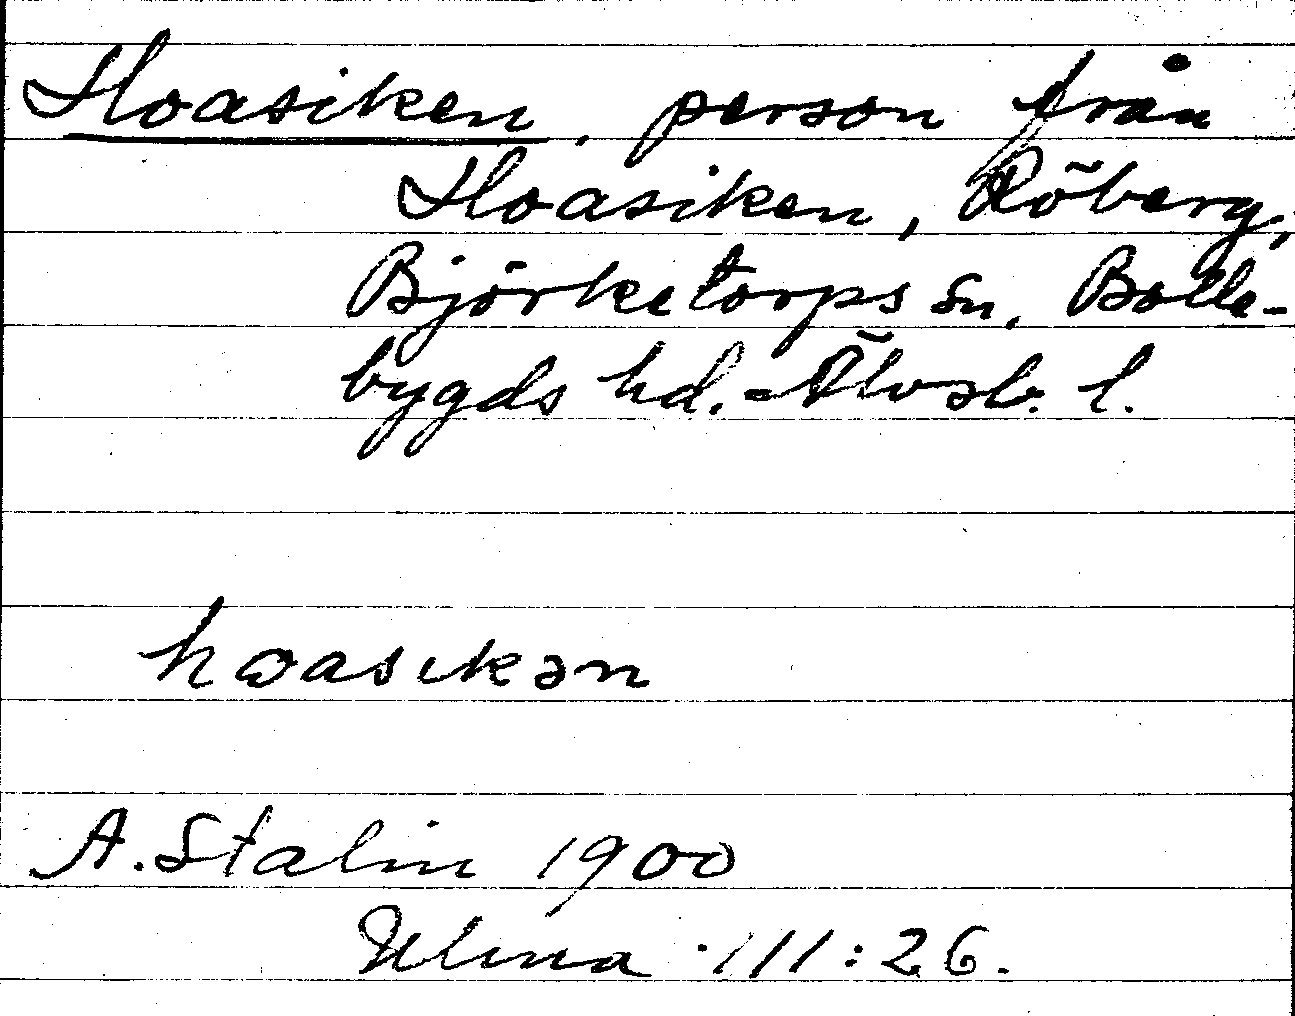 Hoasiken, person från
Hoasiken, Röberg,
Björketorps sn, Bolle-
bygds hd. Älvsb. l.
hoasikən
A. Stalin 1900
Ulma 111:26.